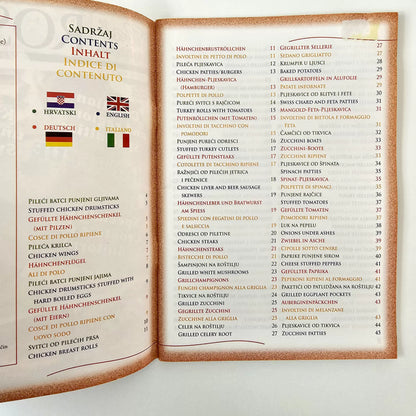 SADRŽAJ
CONTENTS
INHALT
INDICE DI
CONTENUTO
HRVATSKI
ENGLISH
DEUTSCH
ITALIANO
PILEĆI BATCI PUNJENI GLJIVAMA
STUFFED CHICKEN DRUMSTICKS
GEFÜLLTE HÄHNCHENSCHENKEL
(MIT PILZEN)
COSCE DI POLLO RIPIENE
PILEĆA KRILCA
CHICKEN WINGS
HÄHNCHENFLÜGEL
ALI DI POLO
PILEĆI BATCI PUNJENI JAJIMA
CHICKEN DRUMSTICKS STUFFED WITH
HARD BOILED EGGS
GEFÜLLTE HÄHNCHENSCHENKEL
(MIT EIERN)
COSCE DI POLLO RIPIENE CON
UOVO SODO
SVITCI OD PILEĆIH PRSA
CHICKEN BREAST ROLLS
HÄHNCHENBRUSTRÖLLCHEN 11
INVOLTINI DI PETTO DI POLLO
PILEĆA PLJESKAVICA
CHICKEN PATTIES/BURGERS
HÄHNCHENPLJESKAVICA
(HAMBURGER)
POLPETTE DI POLLO
PUREĆI SVITCI S RAJČICOM
TURKEY ROLLS WITH TOMATO
PUTENRÖLLCHEN (MIT TOMATEN)
INVOLTINI DI TACCHINO CON
POMODORI
PUNJENI PUREĆI ODRESCI
STUFFED TURKEY CUTLETS
GEFÜLLTE PUTENSTEAKS
COTOLETTE DI TACCHINO RIPIENE
RAŽNJIĆI OD PILEĆIH JETRICA
I PEČENICE
CHICKEN LIVER AND BEER SAUSAGE
SKEWERS
HÄHNCHENLEBER UND BRATWURST
AM SPIESS
SPIEDINI CON FEGATINI DI POLLO
E SALSICCIA
ODRESCI OD PILETINE
CHICKEN STEAKS
HÄHNCHENSTEAKS
BISTECCHE DI POLLO
ŠAMPINJONI NA ROŠTILJU
GRILLED WHITE MUSHROOMS
GRILLCHAMPIGNONS
FUNGHI CHAMPIGNON ALLA GRIGLIA
TIKVICE NA ROŠTILJU
GRILLED ZUCCHINI
GEGRILLTE ZUCCHINI
ZUCCHINE ALLA GRIGLIA
CELER NA ROŠTILJU
GRILLED CELERY ROOT 27
GEGRILLTER SELLERIE 27
SEDANO GRIGLIATTO
KRUMPIR U LJUSCI
BAKED POTATOES
GRILLKARTOFFELN IN ALUFOLIE
PATATE INFORNATE
PLJESKAVICE OD BLITVE I FETE
SWISS CHARD AND FETA PATTIES
MANGOLD-FETA-PLJESKAVICA
INVOLTINI DI BIETOLA E FORMAGGIO
FETA
ČAMČIĆI OD TIKVICA
ZUCCHINI BOATS
ZUCCHINI-BOOTE
ZUCCHINE RIPIENE
PLJESKAVICE OD SPINATA
SPINACH PATTIES
SPINAT-PLJESKAVICA
POLPETTE DI SPINACI
PUNJENE RAJČICE
STUFFED TOMATOES
GEFÜLLTE TOMATEN
POMODORI RIPIENI
LUK NA PEPELU
ONIONS UNDER ASHES
ZWIEBEL IN ASCHE
CIPOLLE SOTTO CENERE
PAPRIKA PUNJENA SIROM
CHEESE STUFFED PEPPERS
GEFÜLLTE PAPRIKA
PEPERONI RIPIENI AL FORMAGGIO
PAKETIĆI OD PATLIDŽANA NA ROŠTILJU
GRILLED EGGPLANT POCKETS
AUBERGINENPÄCKCHEN
INVOLTINI DI MELANZANE
ALLA GRIGLIA
PLJESKAVICE OD TIKVICA 45
ZUCCHINI PATTIES 45